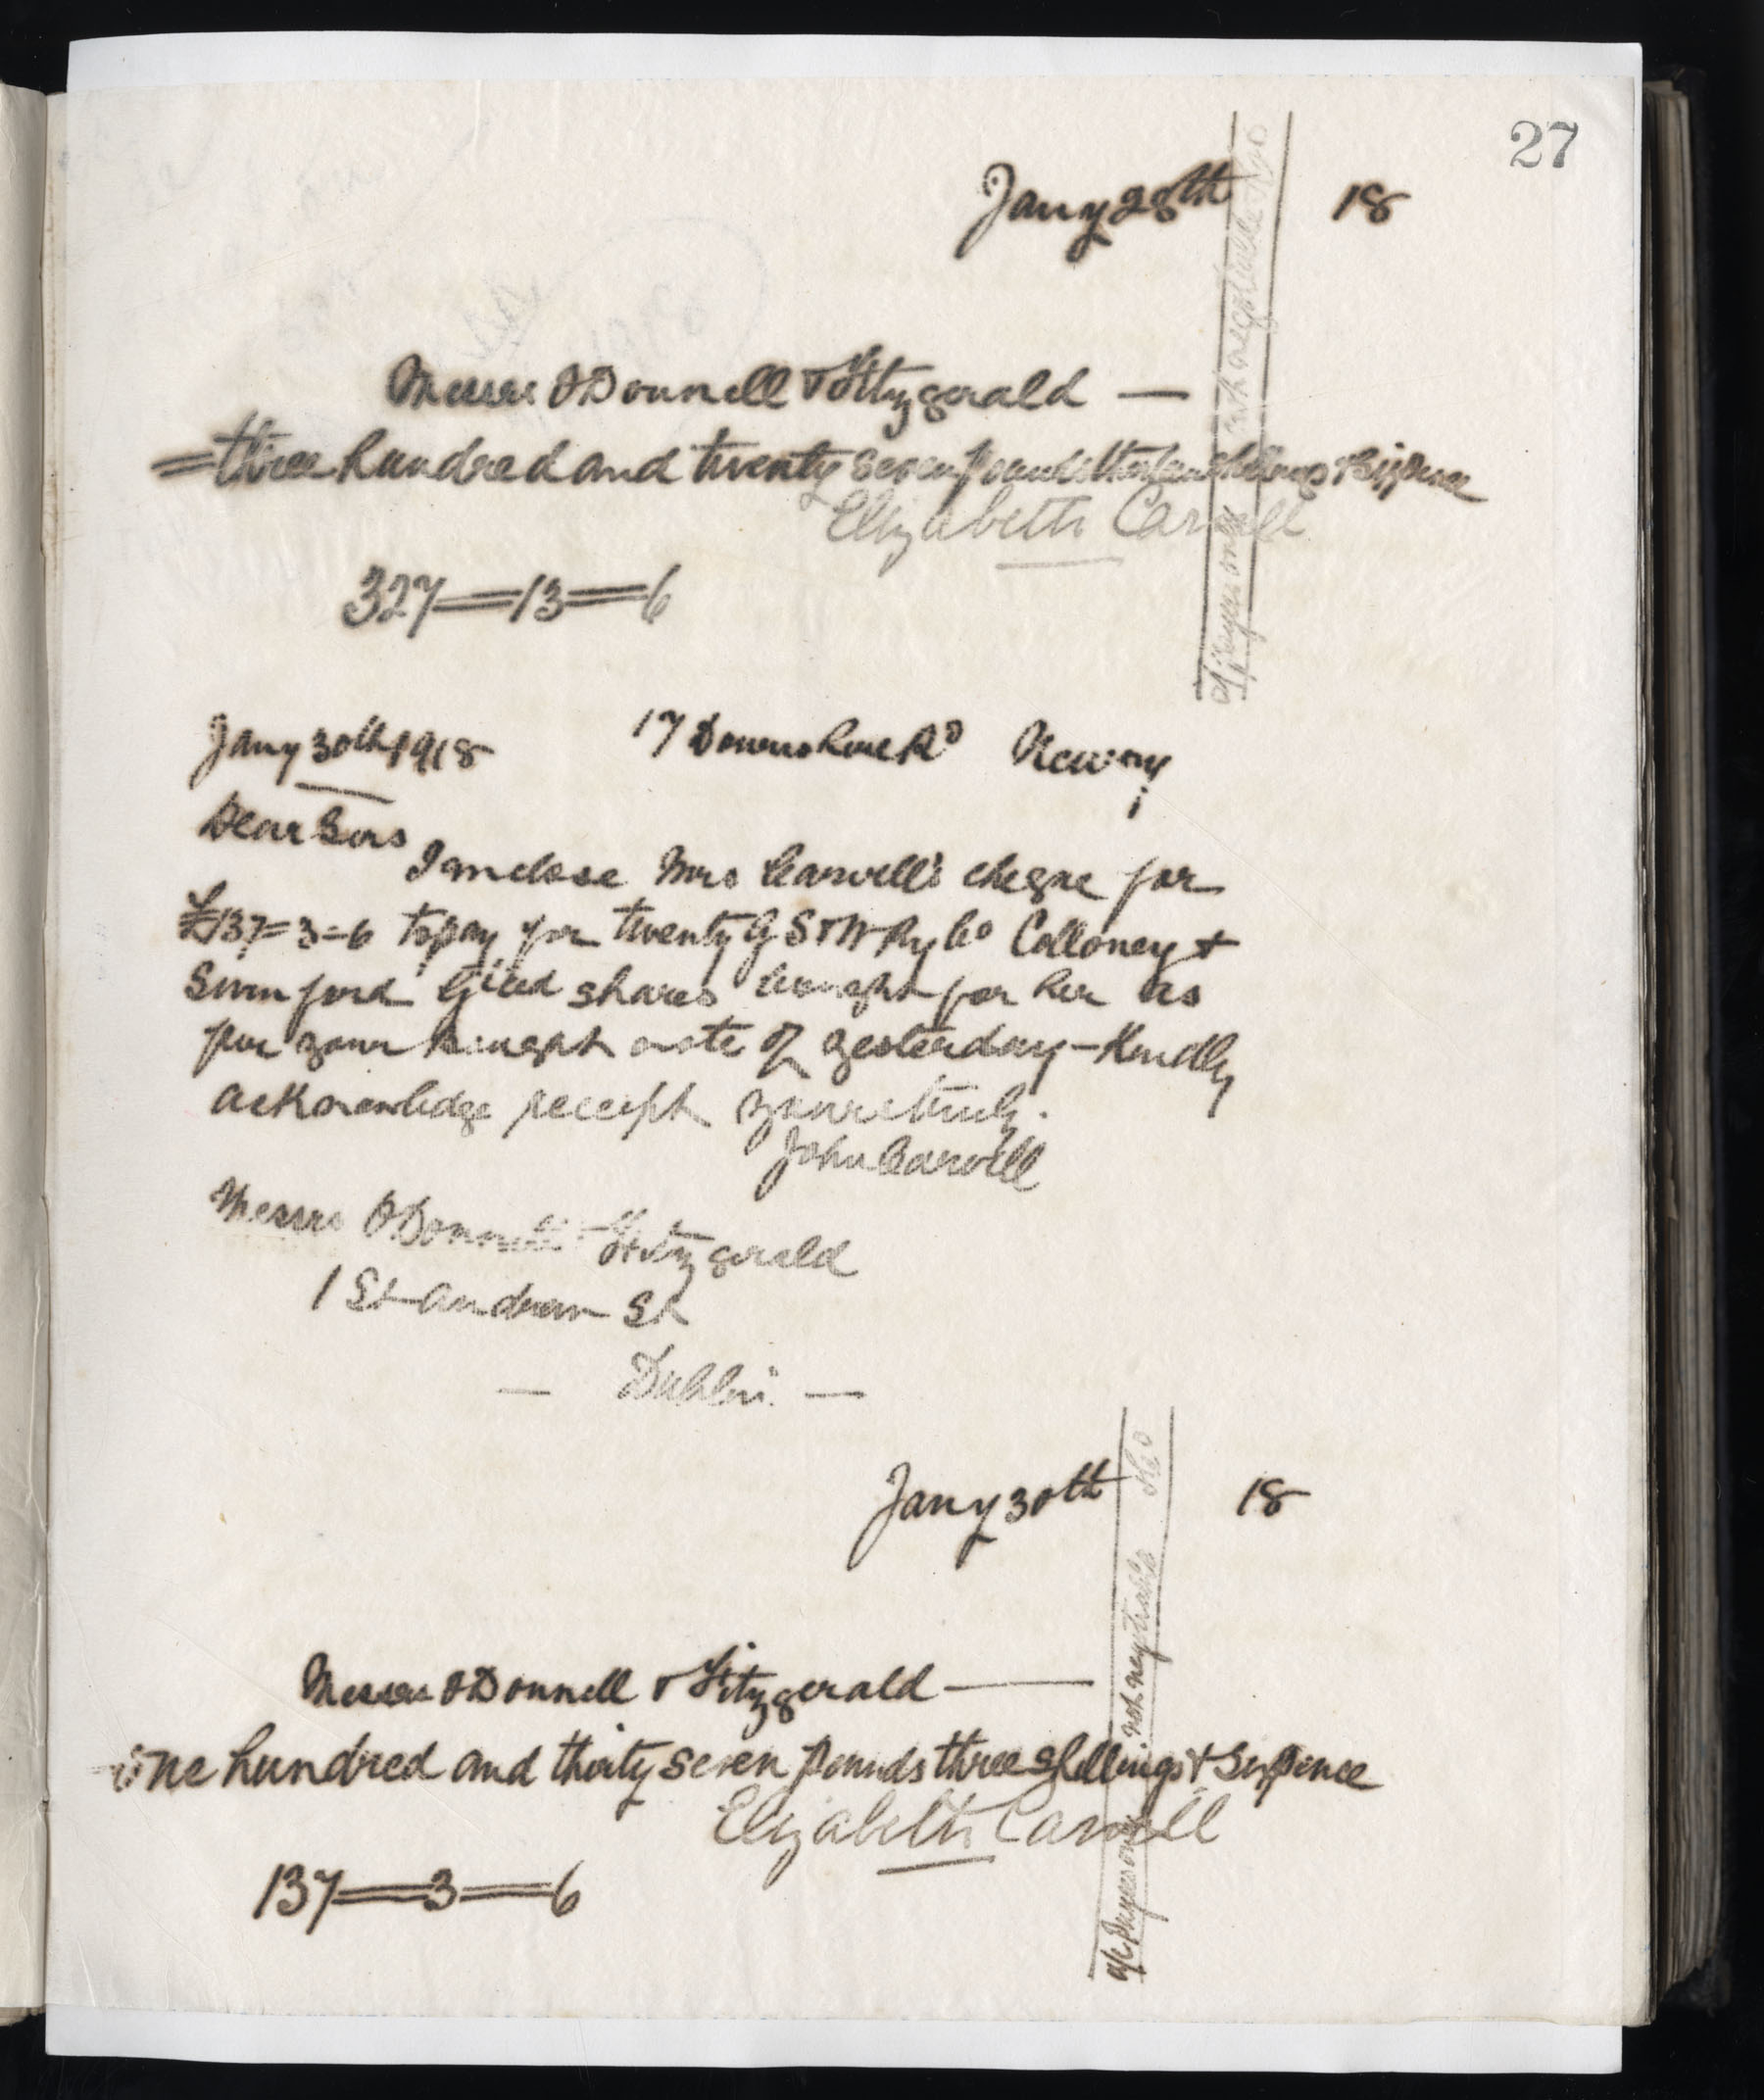 27
Jany 28th 18
Messrs O'Donnell & Fitzgerald —
= three hundred and twenty seven pounds thirteen shillings & sixpence
Elizabeth Carvell
327 = 13 = 6
a/c payee only not negotiable & Co
Jany 30th 1918 17 Downshire Rd Newry
Dear Sirs
I inclose Mrs Carvell's cheque for
£137=3=6 to pay for twenty G S & W Ry Co Colloney &
Swinford Gteed shares bought for her as
per your bought note of yesterday – Kindly
acknowledge receipt yours truly.
John Carvill
Messrs O'Donnell Fitzgerald
1 St Andrew St
— Dublin. —
Jany 30th 18
Messrs O'Donnell & Fitzgerald —
one hundred and thirty seven pounds three shillings & sixpence
Elizabeth Carvell
137 = 3 = 6
a/c payee only not negotiable & Co